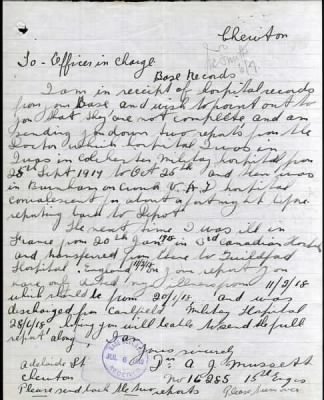 Chewton
To - Officer in Charge
Base Records
I am in receipt of hospital records
from your Base, and wish to point out to
you that they are not complete, and am
sending you down two reports from the
Doctor which hospital I was in
I was in Colchester Military hospital from
25th Sept 1917 to Oct 25th and then was
in Burnham on Crouch V.A.D. hospital
convalescent for about a fortnight before
reporting back to Depot.
The next time I was ill in
France from 20th Jan 1918 in 3rd Canadian Hosp
and transferred from there to Guildford
Hospital, England on your report you
have only dated my illness from 11/2/18
which should be from 20/1/18. and was
discharged from Caulfield Military Hospital
28/6/18 hoping you will be able to send the full
report along. I am
Yours sincerely
Adelaide St A J Mussett
Chewton No 16285 15th Engrs
Please send back the two reports Please turn over